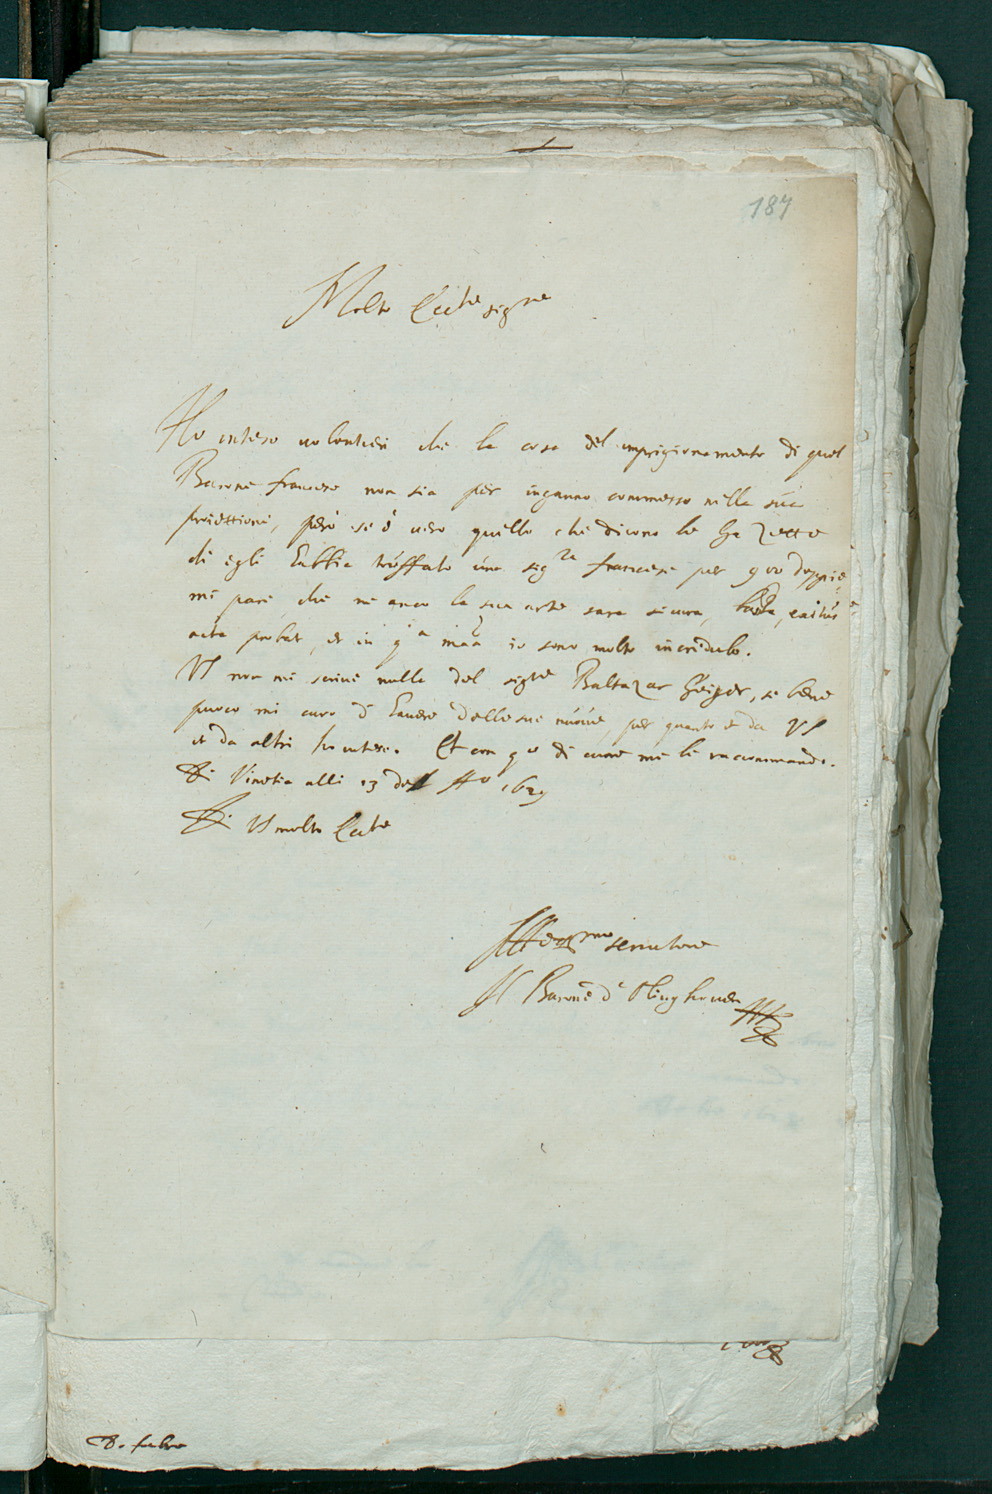 187
Molto Ecc.te sig.re
Ho inteso volontieri che la cosa del imprigionamento di quel
Barone francese non sia per inganno commesso nella sua
proiettione, però se è vero quello che dicono le Gazette
ch egli habbia truffato una sig.ra francese per 900 doppie
mi pare che ne anco la sua arte sara sicura, exitus
acta probat, et in q.a io sono molto incredulo.
VS non mi scrive nulla del sig.re Baltazar Geiger, se bene
puoco mi curo d'havere delle sue nuove, per quanto e da VS
et da altri ho inteso. Et con q.o di cuore me li raccommando.
Di Venetia alli 23 dell 1629
Di VS molto Ecc.te
Aff.mo servitore
Il Barone d'